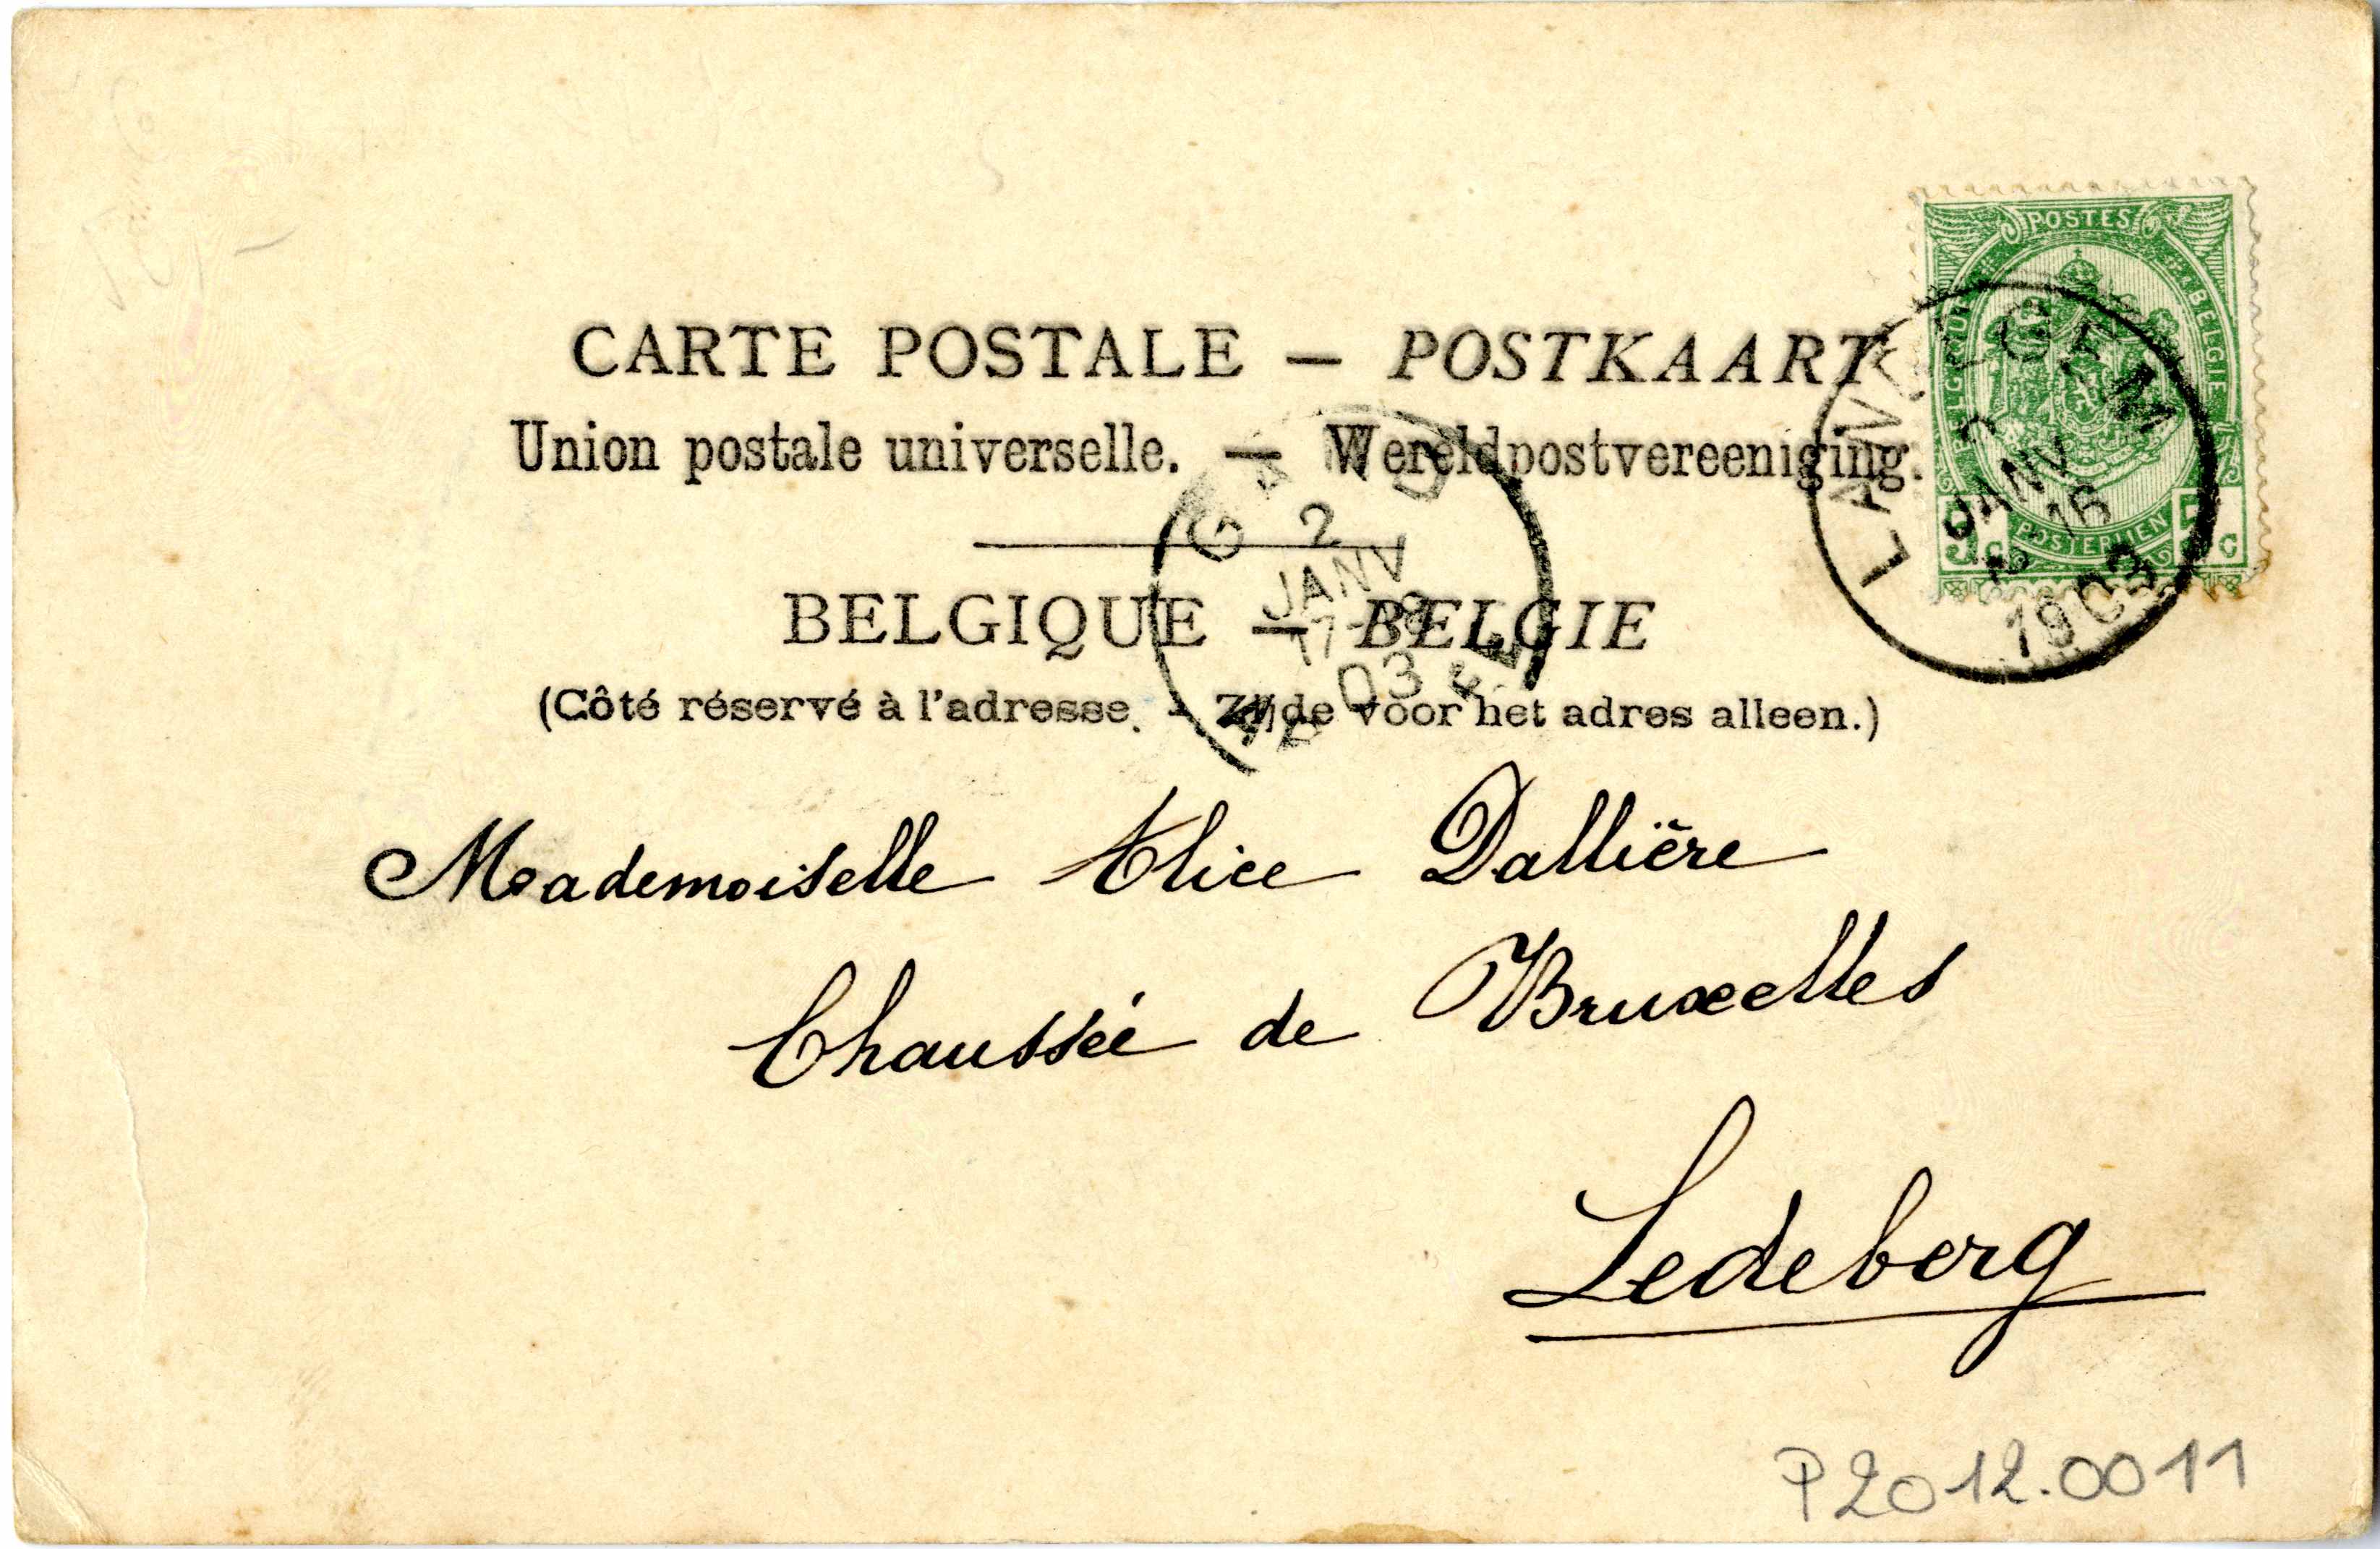 CARTE POSTALE — POSTKAART
Union postale universelle. — Wereldpostvereeniging.
BELGIQUE — BELGIE
(Côté réservé à l'adresse. - Zijde voor het adres alleen.)
POSTES
BELGIE
POSTERIJEN
5 C
5 C
JANV
16
1903
2
JANV
03
Mademoiselle Alice Dallière
Chaussée de Bruxelles
Ledeberg
P2012.0011